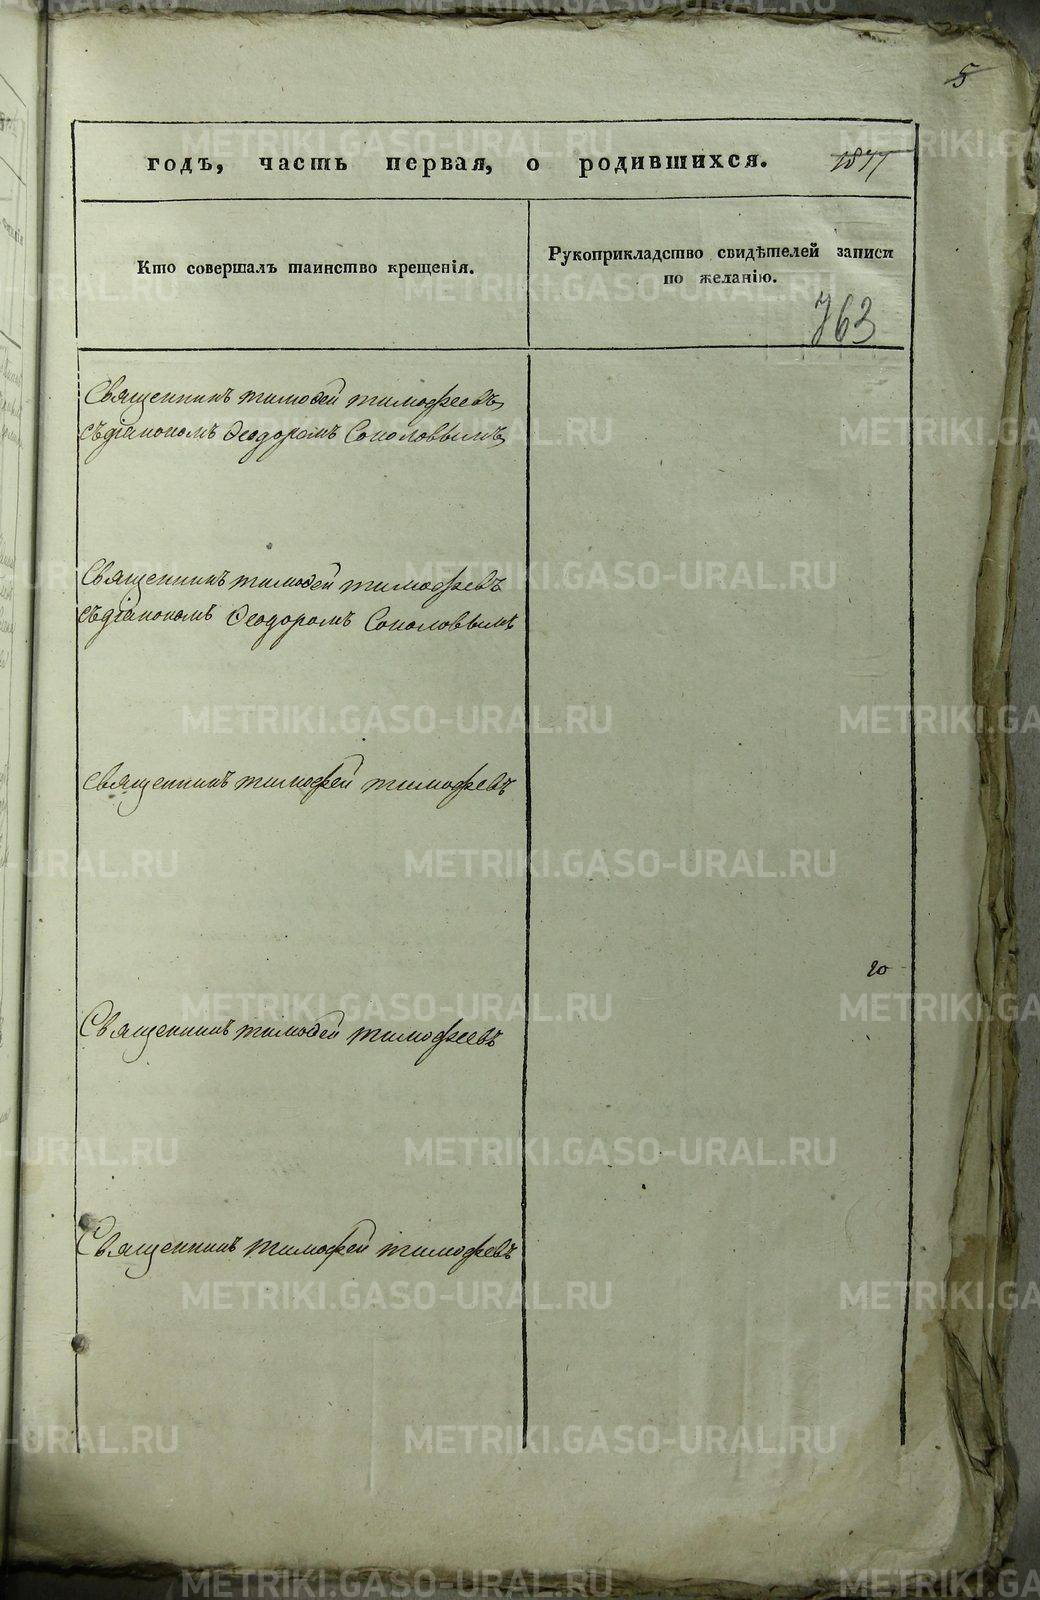 5
годъ, часть первая, о родившихся.
Кто совершалъ таинство крещенія.
Рукоприкладство свидѣтелей записи
по желанію.
763
Священникъ тимофей тимофеевъ
съ діакономъ Феодоромъ Соколовымъ
Священникъ тимофей тимофевъ
съ діакономъ Феодоромъ Соколовымъ
священникъ тимофей тимофевъ
20
Священникъ тимофей тимофеевъ
Священникъ тимофей тимофевъ
METRIKI.GASO-URAL.RU